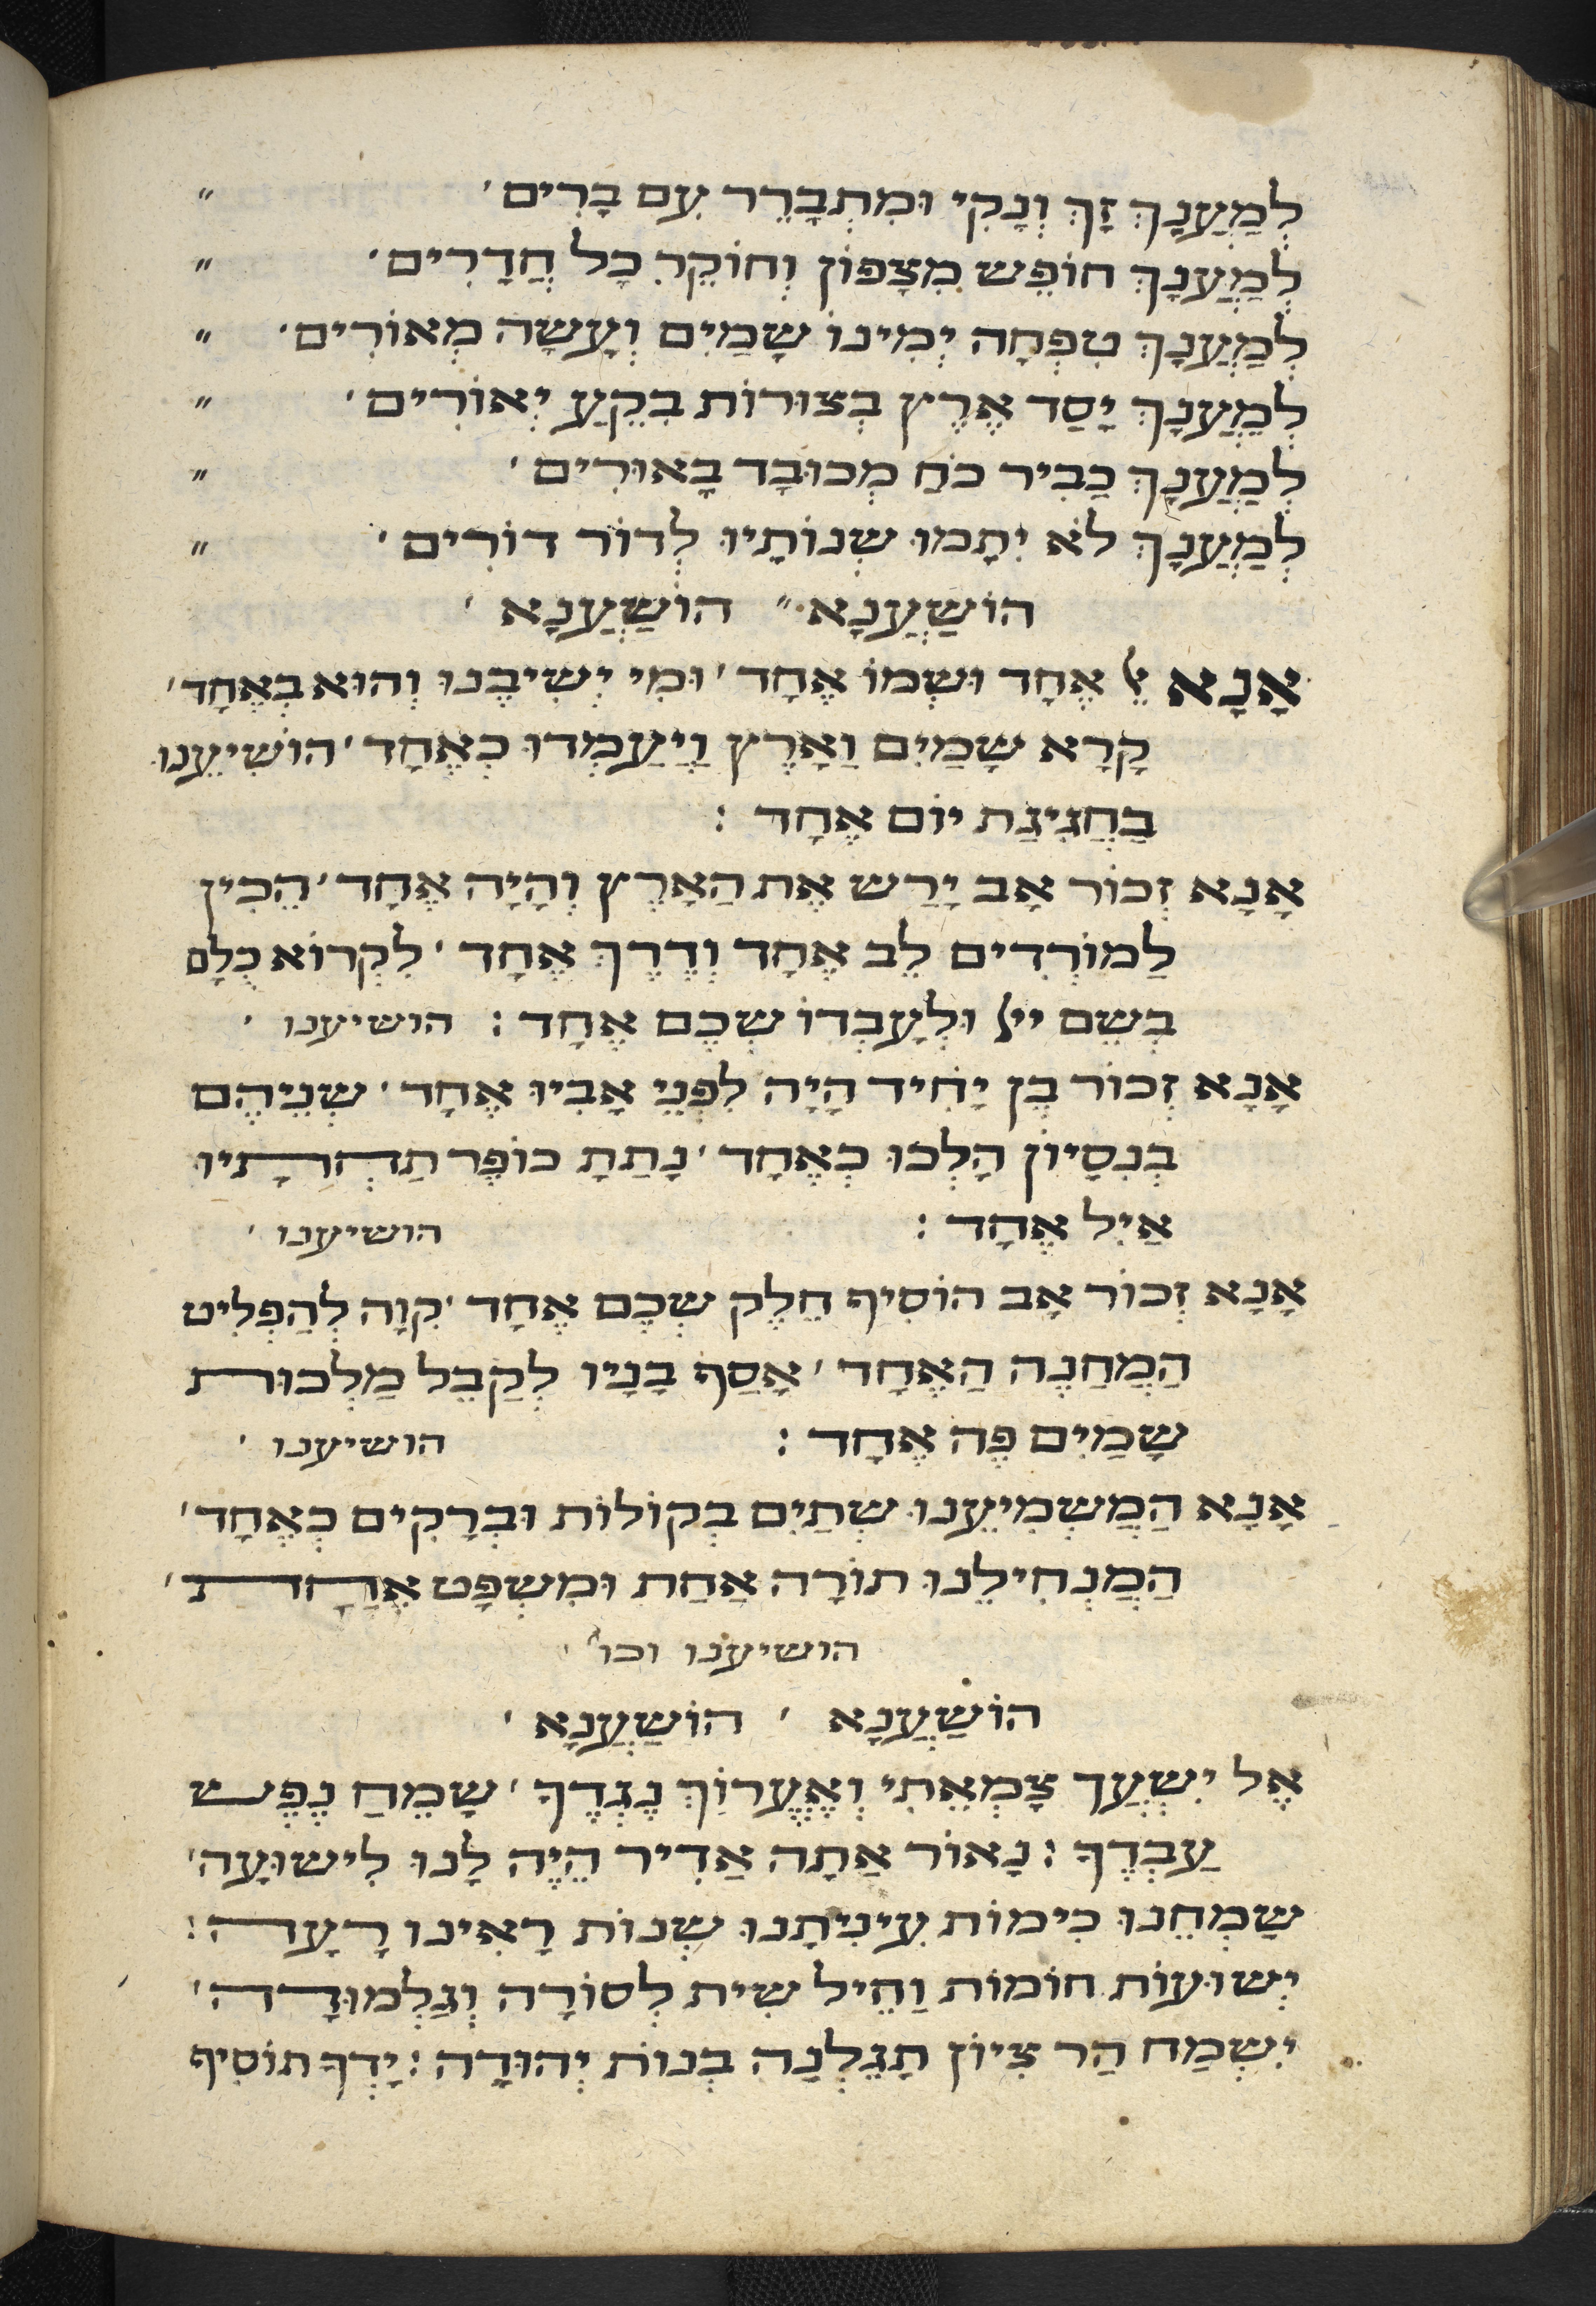 לְמַעֲנָךְ זַךְ וְנָקִי וּמִתְבָּרֵר עִם בָּרִים ׳ ״
לְמַעֲנָךְ חוֹפֵשׂ מִצָּפוֹן וְחוֹקֵר כָּל חֲדָרִים ׳ ״
לְמַעֲנָךְ טִפְּחָה יְמִינוֹ שָׁמַיִם וְעָשָׂה מְאוֹרִים ׳ ״
לְמַעֲנָךְ יָסַד אֶרֶץ בְּצוּרוֹת בִּקֵּעַ יְאוֹרִים ׳ ״
לְמַעֲנָךְ כַּבִּיר כֹּחַ מְכוּבָּד בָּאוּרִים ׳ ״
לְמַעֲנָךְ לֹא יִתַּמּוּ שְׁנוֹתָיו לְדוֹר דּוֹרִים ׳ ״
הוֹשַׁעֲנָא ״ הוֹשַׁעֲנָא ׳
אָנָּא אֵל אֶחָד וּשְׁמוֹ אֶחָד ׳ וּמִי יְשִׁיבֶנּוּ וְהוּא בְאֶחָד ׳
קָרָא שָׁמַיִם וָאָרֶץ וַיַּעַמְדוּ כְּאֶחָד ׳ הוֹשִׁיעֵנוּ
בַּחֲגִיגַת יוֹם אֶחָד :
אָנָּא זְכוֹר אָב יָרַשׁ אֶת הָאָרֶץ וְהָיָה אֶחָד ׳ הֵכִין
לַמּוֹרְדִים לֵב אֶחָד וְדֶרֶךְ אֶחָד ׳ לִקְרוֹא כֻלָּם
בְּשֵׁם ייי וּלְעָבְדוֹ שְׁכֶם אֶחָד : הושיענו ׳
אָנָּא זְכוֹר בֵּן יָחִיד הָיָה לִפְנֵי אָבִיו אֶחָד ׳ שְׁנֵיהֶם
בְּנִסָּיוֹן הָלְכוּ כְּאֶחָד ׳ נָתַתָּ כוֹפֶר תַּחְתָּיו
אַיִל אֶחָד : הושיענו ׳
אָנָּא זְכוֹר אָב הוֹסִיף חֵלֶק שְׁכֶם אֶחָד ׳ קִוָּה לְהַפְלִיט
הַמַּחֲנֶה הָאֶחָד ׳ אָסַף בָּנָיו לְקַבֵּל מַלְכוּת
שָׁמַיִם פֶּה אֶחָד : הושיענו ׳
אָנָּא הַמַּשְׁמִיעֵנוּ שְׁתַּיִם בְּקוֹלוֹת וּבְרָקִים כְּאֶחָד ׳
הַמַּנְחִילֵנוּ תוֹרָה אַחַת וּמִשְׁפָּט אֶחָד ׳
הושיענו וכו׳
הוֹשַׁעֲנָא ׳ הוֹשַׁעֲנָא ׳
אֶל יִשְׁעֲךָ צָמְאֵתִי וְאֶעֱרוֹךְ נֶגְדֶּךָ ׳ שַׂמֵּחַ נֶפֶשׁ
עַבְדֶּךָ : נָאוֹר אַתָּה אַדִּיר הֱיֵה לָנוּ לִישׁוּעָה ׳
שַׂמְּחֵנוּ כִּימוֹת עִינִּיתָנוּ שְׁנוֹת רָאִינוּ רָעָה :
יְשׁוּעוֹת חוֹמוֹת וָחֵיל שִׁית לְסוֹרָה וְגַלְמוּדָה ׳
יִשְׂמַח הַר צִיּוֹן תָּגֵלְנָה בְּנוֹת יְהוּדָה : יָדְךָ תוֹסִיף